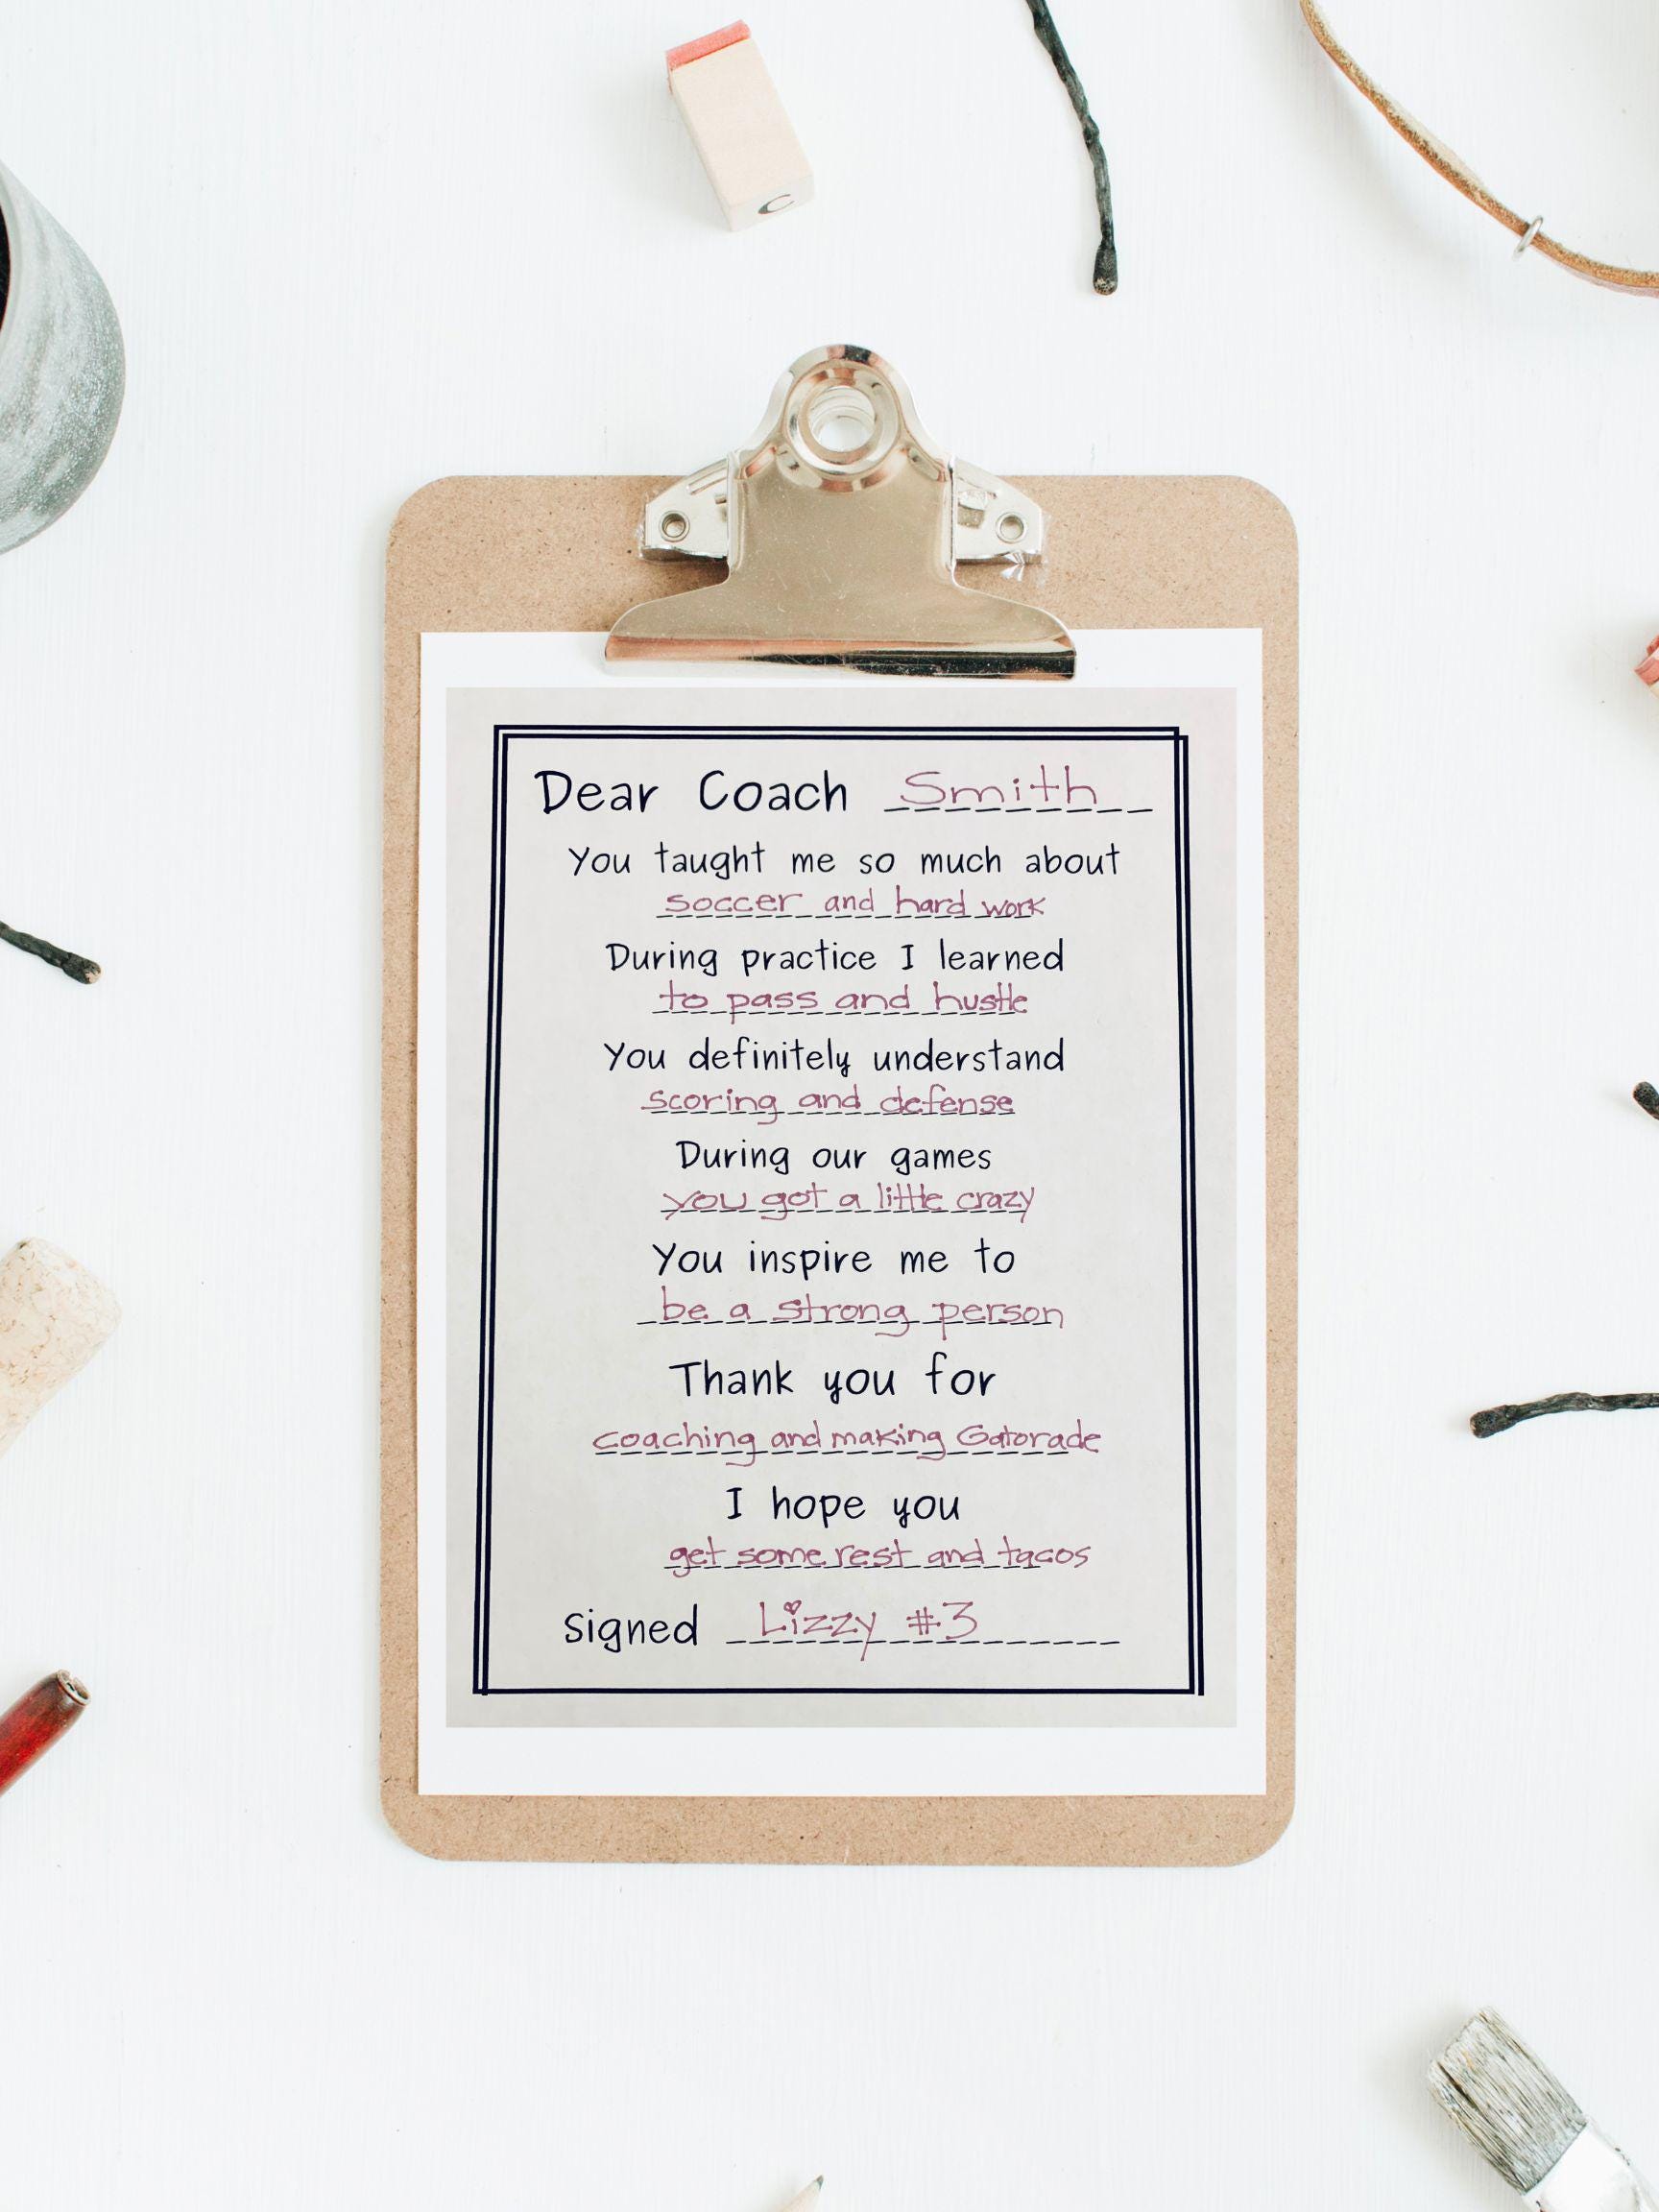 C
Dear Coach Smith
You taught me so much about
soccer and hard work
During practice I learned
to pass and hustle
You definitely understand
scoring and defense
During our games
you got a little crazy
You inspire me to
be a strong person
Thank you for
coaching and making Gatorade
I hope you
get some rest and tacos
signed Lizzy #3